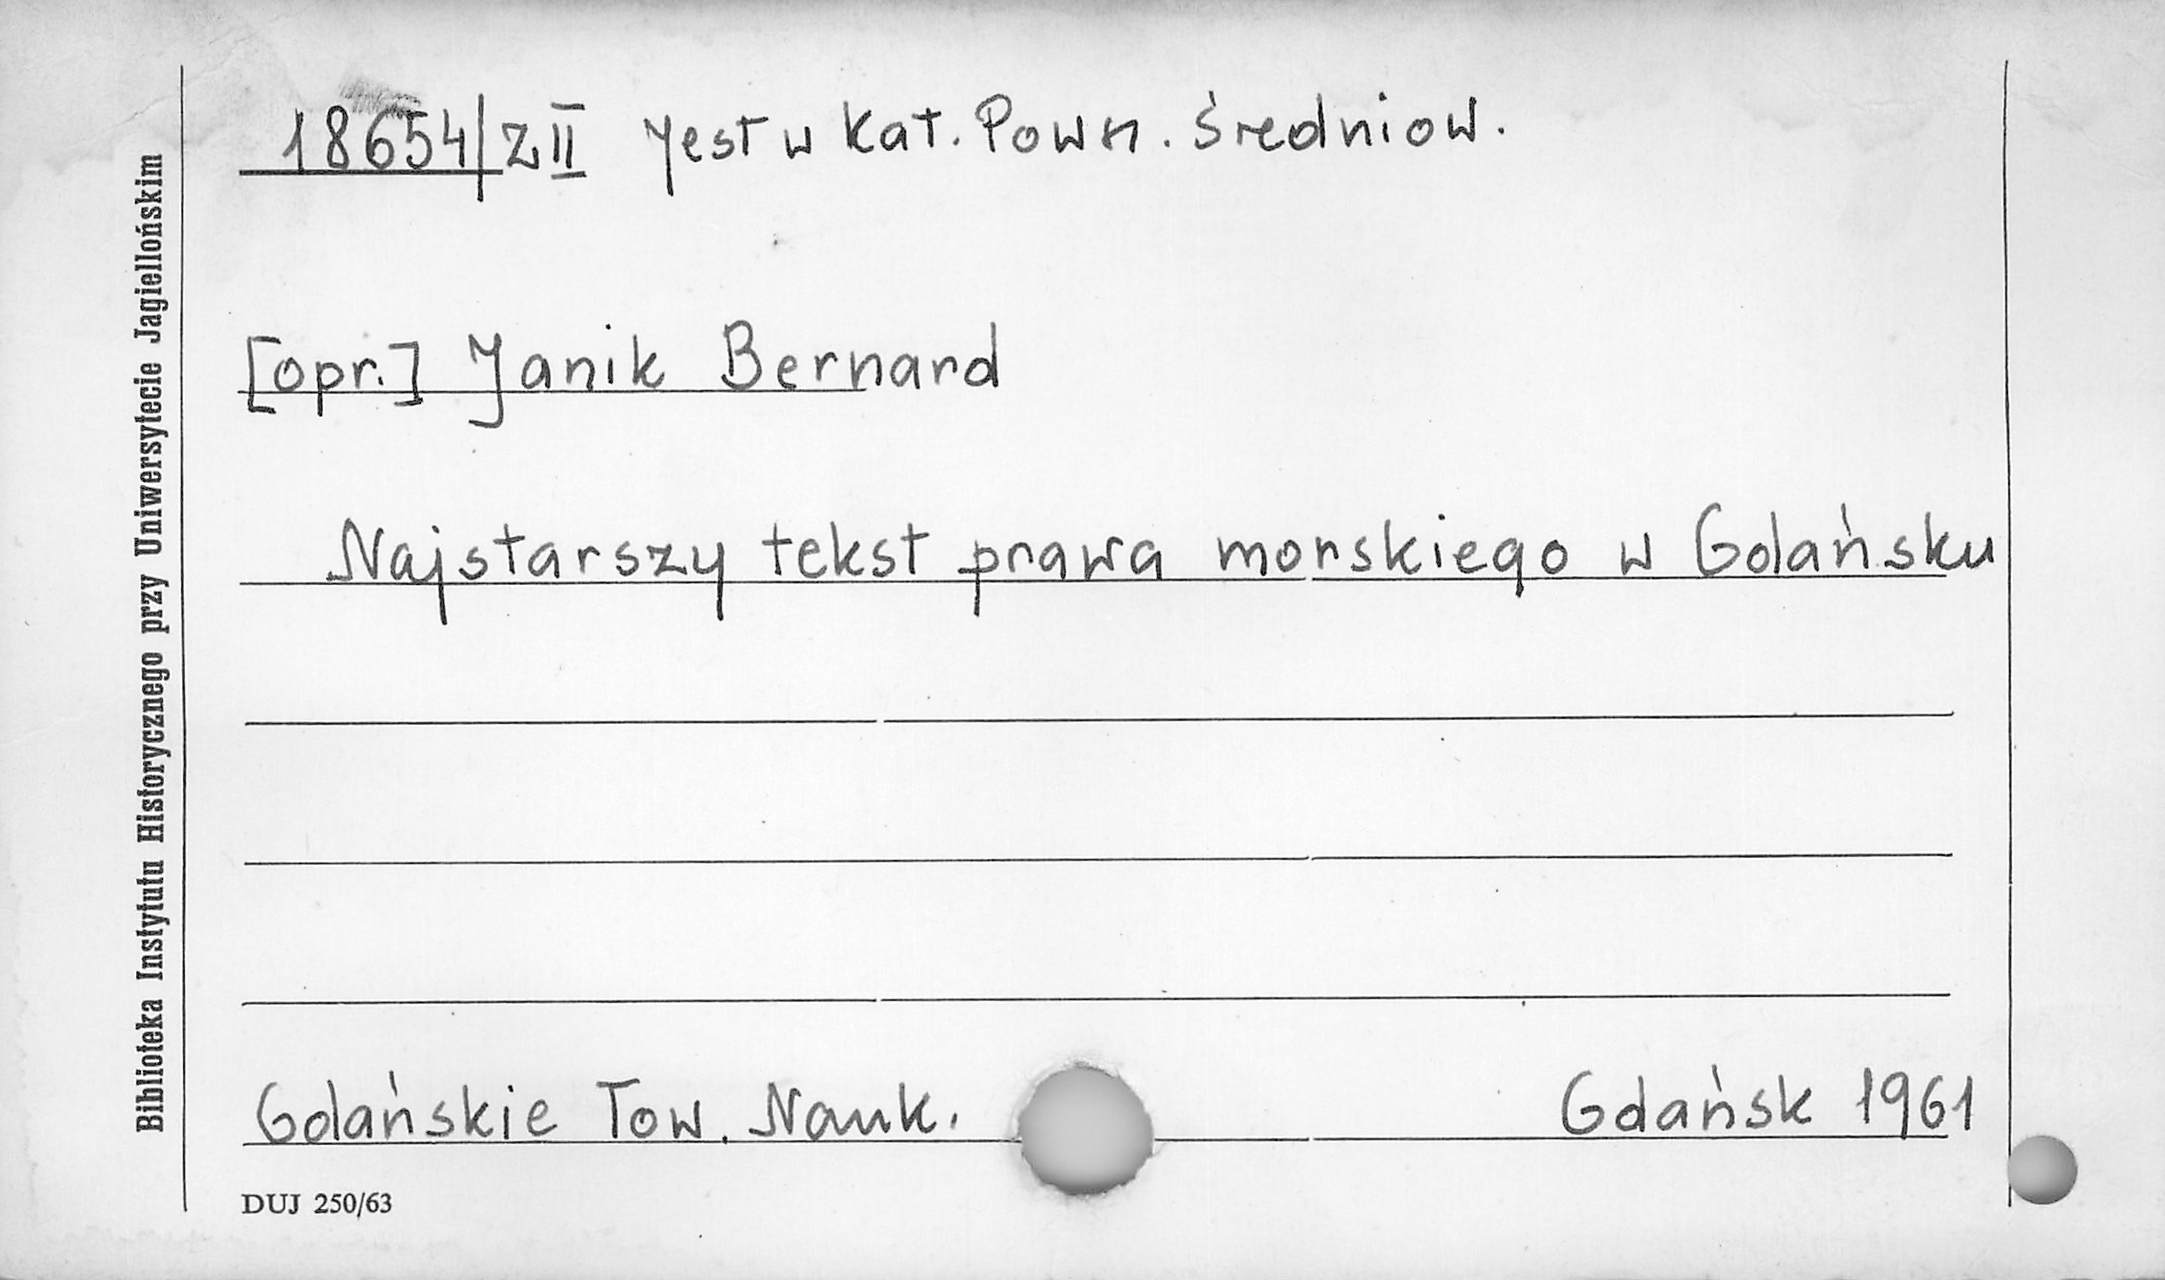 18654/ZII Jest w Kat. Powsz. Średniow.
[opr.] Janik Bernard
Najstarszy tekst prawa morskiego w Gdańsku
Gdańskie Tow. Nauk. Gdańsk 1961
DUJ 250/63
Biblioteka Instytutu Historycznego przy Uniwersytecie Jagiellońskim